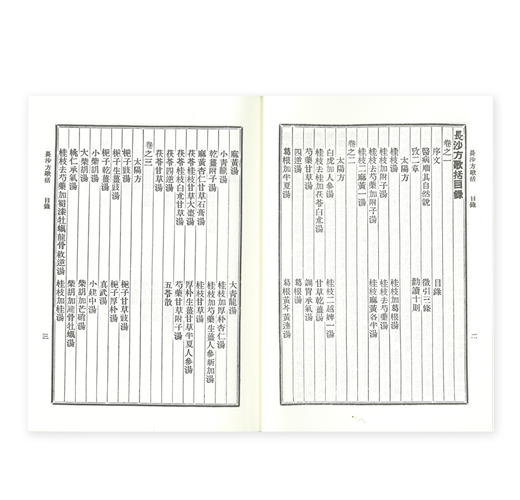 長沙方歌括 目錄 二
長沙方歌括目錄
序文 目錄
醫病順其自然說 徵引三條
攷二章 勸讀十則
卷之一
太陽方
桂枝湯 桂枝加葛根湯
桂枝加附子湯 桂枝去芍藥湯
桂枝去芍藥加附子湯 桂枝麻黃各半湯
桂枝二麻黃一湯
卷之二
太陽方
白虎加人參湯 桂枝二越婢一湯
桂枝去桂加茯苓白朮湯 甘草乾薑湯
芍藥甘草湯 調胃承氣湯
四逆湯 葛根湯
葛根加半夏湯 葛根黃芩黃連湯
麻黃湯 大青龍湯
小青龍湯 桂枝加厚朴杏仁湯
乾薑附子湯 桂枝加芍藥生薑人參新加湯
麻黃杏仁甘草石膏湯 桂枝甘草湯
茯苓桂枝甘草大棗湯 厚朴生薑甘草半夏人參湯
茯苓桂枝白朮甘草湯 芍藥甘草附子湯
茯苓四逆湯 五苓散
茯苓甘草湯
卷之三
太陽方
梔子豉湯 梔子甘草豉湯
梔子生薑豉湯 梔子厚朴湯
梔子乾薑湯 真武湯
小柴胡湯 小建中湯
大柴胡湯 柴胡加芒硝湯
桃仁承氣湯 柴胡加龍骨牡蠣湯
桂枝去芍藥加蜀漆牡蠣龍骨救逆湯 桂枝加桂湯
長沙方歌括 目錄 三